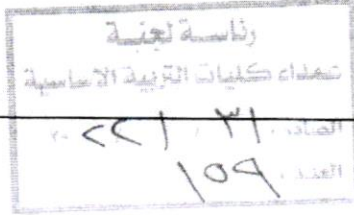 رئاسة لجنة
عمداء كليات التربية الاساسية
الصادر : ٣١ / ١ / ٢٢ ٢٠
العدد : ١٥٩